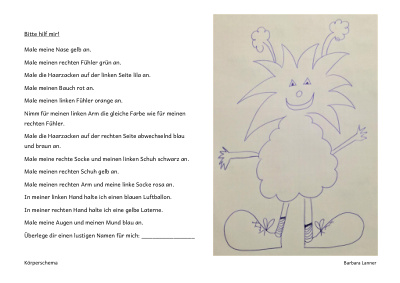 Bitte hilf mir!
Male meine Nase gelb an.
Male meinen rechten Fühler grün an.
Male die Haarzacken auf der linken Seite lila an.
Male meinen Bauch rot an.
Male meinen linken Fühler orange an.
Nimm für meinen linken Arm die gleiche Farbe wie für meinen
rechten Fühler.
Male die Haarzacken auf der rechten Seite abwechselnd blau
und braun an.
Male meine rechte Socke und meinen linken Schuh schwarz an.
Male meinen rechten Schuh gelb an.
Male meinen rechten Arm und meine linke Socke rosa an.
In meiner linken Hand halte ich einen blauen Luftballon.
In meiner rechten Hand halte ich eine gelbe Laterne.
Male meine Augen und meinen Mund blau an.
Überlege dir einen lustigen Namen für mich: ____________________
Körperschema
Barbara Lanner